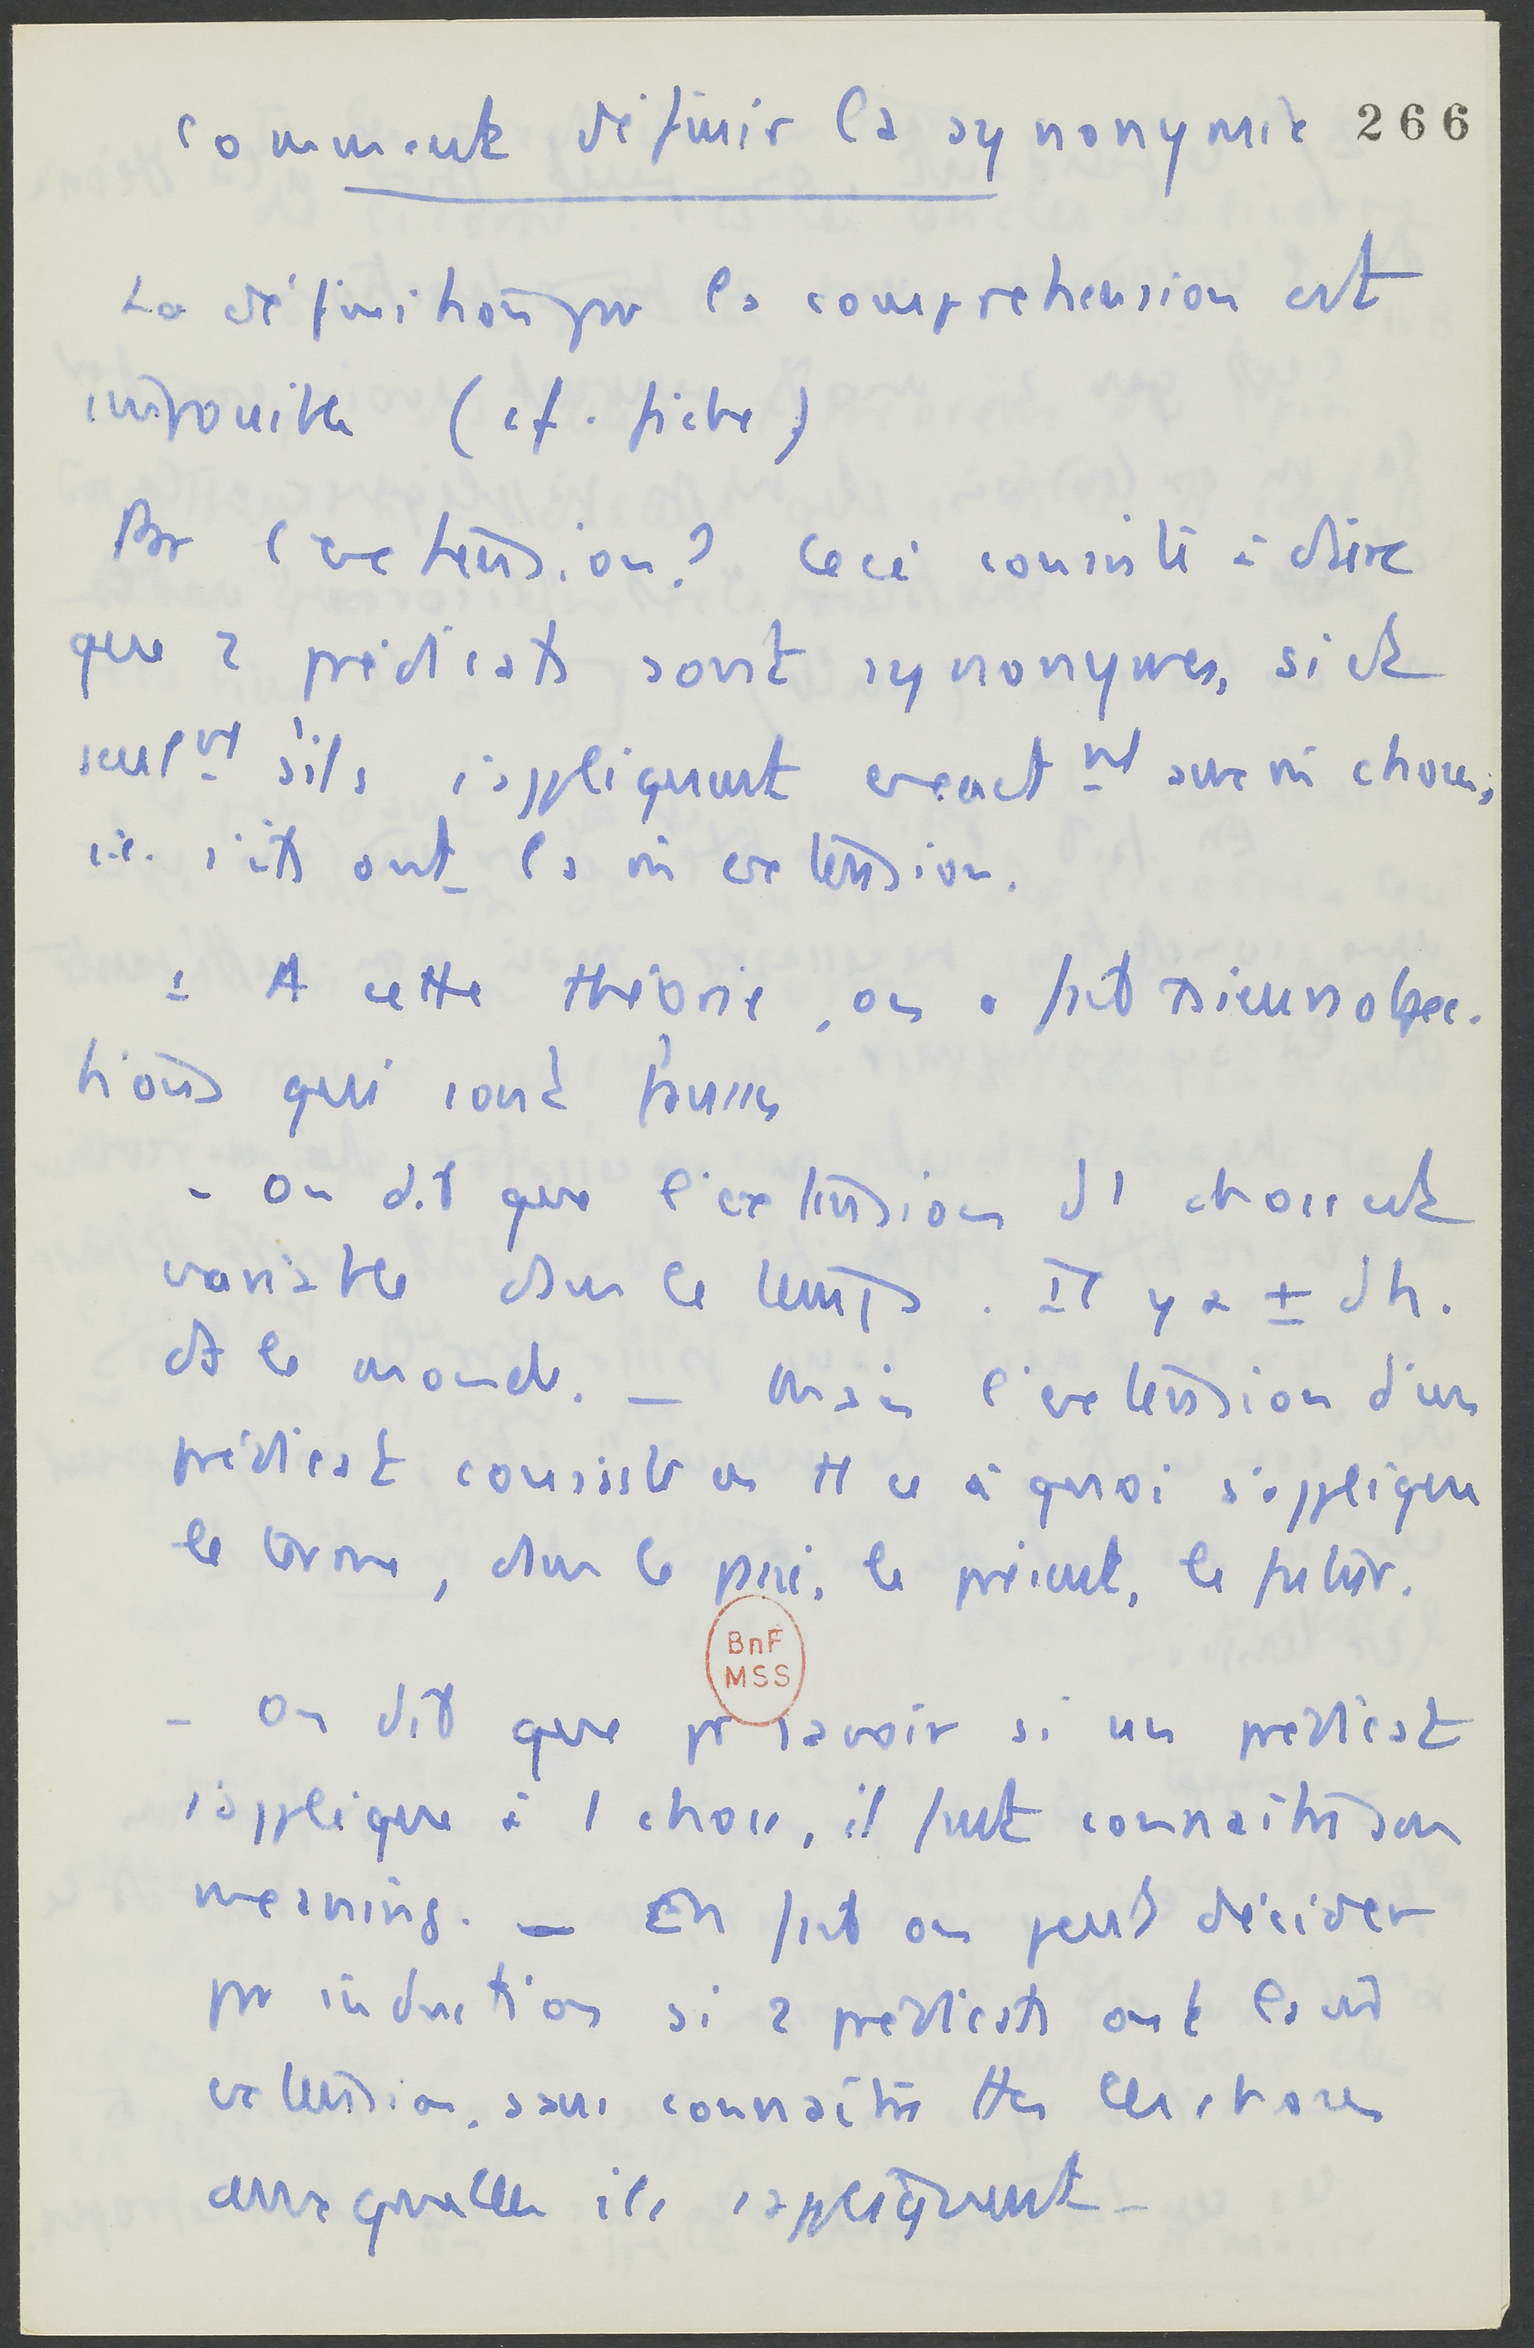 comment définir la synonymie 266
La définition par la compréhension est
impossible (cf. fiche)
Par l'extension? Ceci consiste à dire
que 2 prédicats sont synonymes, si et
seulmt s'ils s'appliquent exactmt aux m̂ choses,
i.e. s'ils ont la m̂ extension.
1 A cette théorie, on a fait plusieurs objec-
tions qui sont fausses
- On dit que l'extension d'1 chose est
variable dans le temps. Il y a ± d'h.
ds le monde. _ Mais l'extension d'un
prédicat consiste en tt ce à quoi s'applique
le terme, dans le passé, le présent, le futur.
BnF
MSS
- On dit que pr savoir si un prédicat
s'applique à 1 chose, il faut connaître son
meaning. _ En fait on peut décider
par induction si 2 prédicats ont la m̂
extension, sans connaître ttes les choses
auxquelles ils s'appliquent _